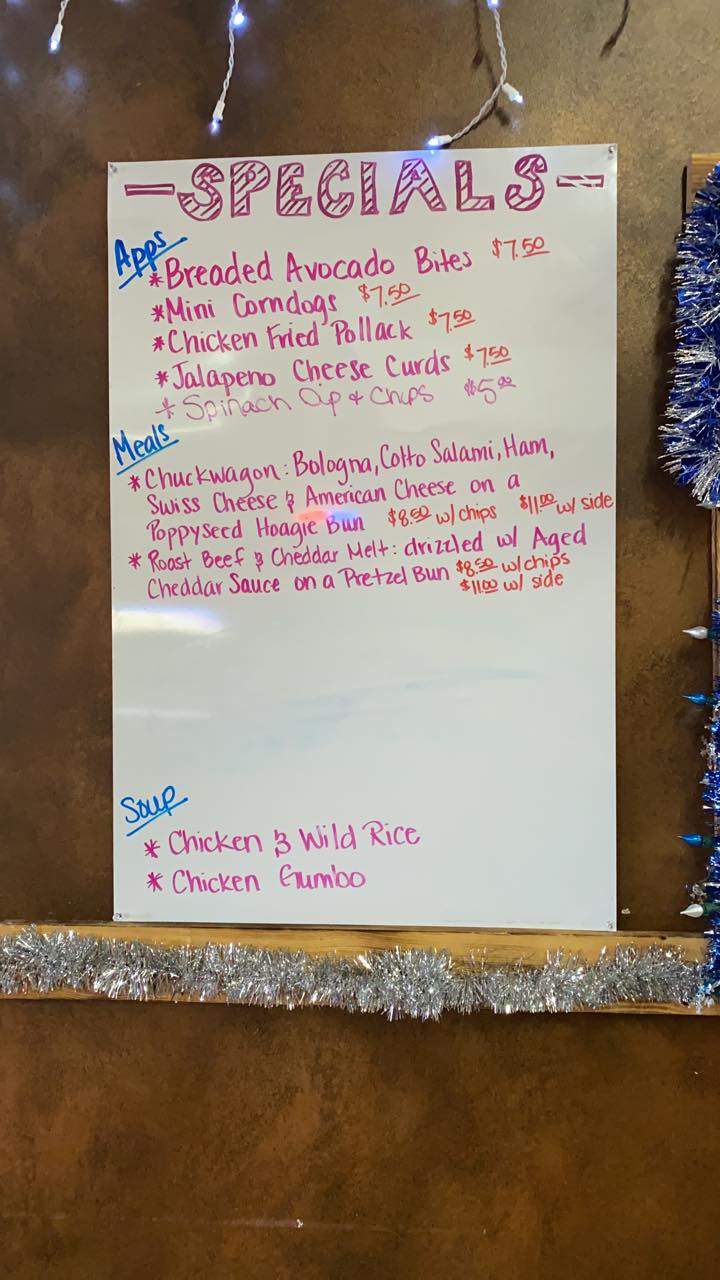 -SPECIALS-
Apps
*Breaded Avocado Bites $7.50
*Mini Corndogs $7.50
*Chicken Fried Pollack $7.50
*Jalapeno Cheese Curds $7.50
*Spinach Dip & Chips $5.00
Meals
*Chuckwagon: Bologna, Cotto Salami, Ham,
Swiss Cheese & American Cheese on a
Poppyseed Hoagie Bun $8.50 w/ chips $11.00 w/ side
* Roast Beef & Cheddar Melt: drizzled w/ Aged
Cheddar Sauce on a Pretzel Bun $8.50 w/ chips
$11.00 w/ side
Soup
* Chicken & Wild Rice
* Chicken Gumbo